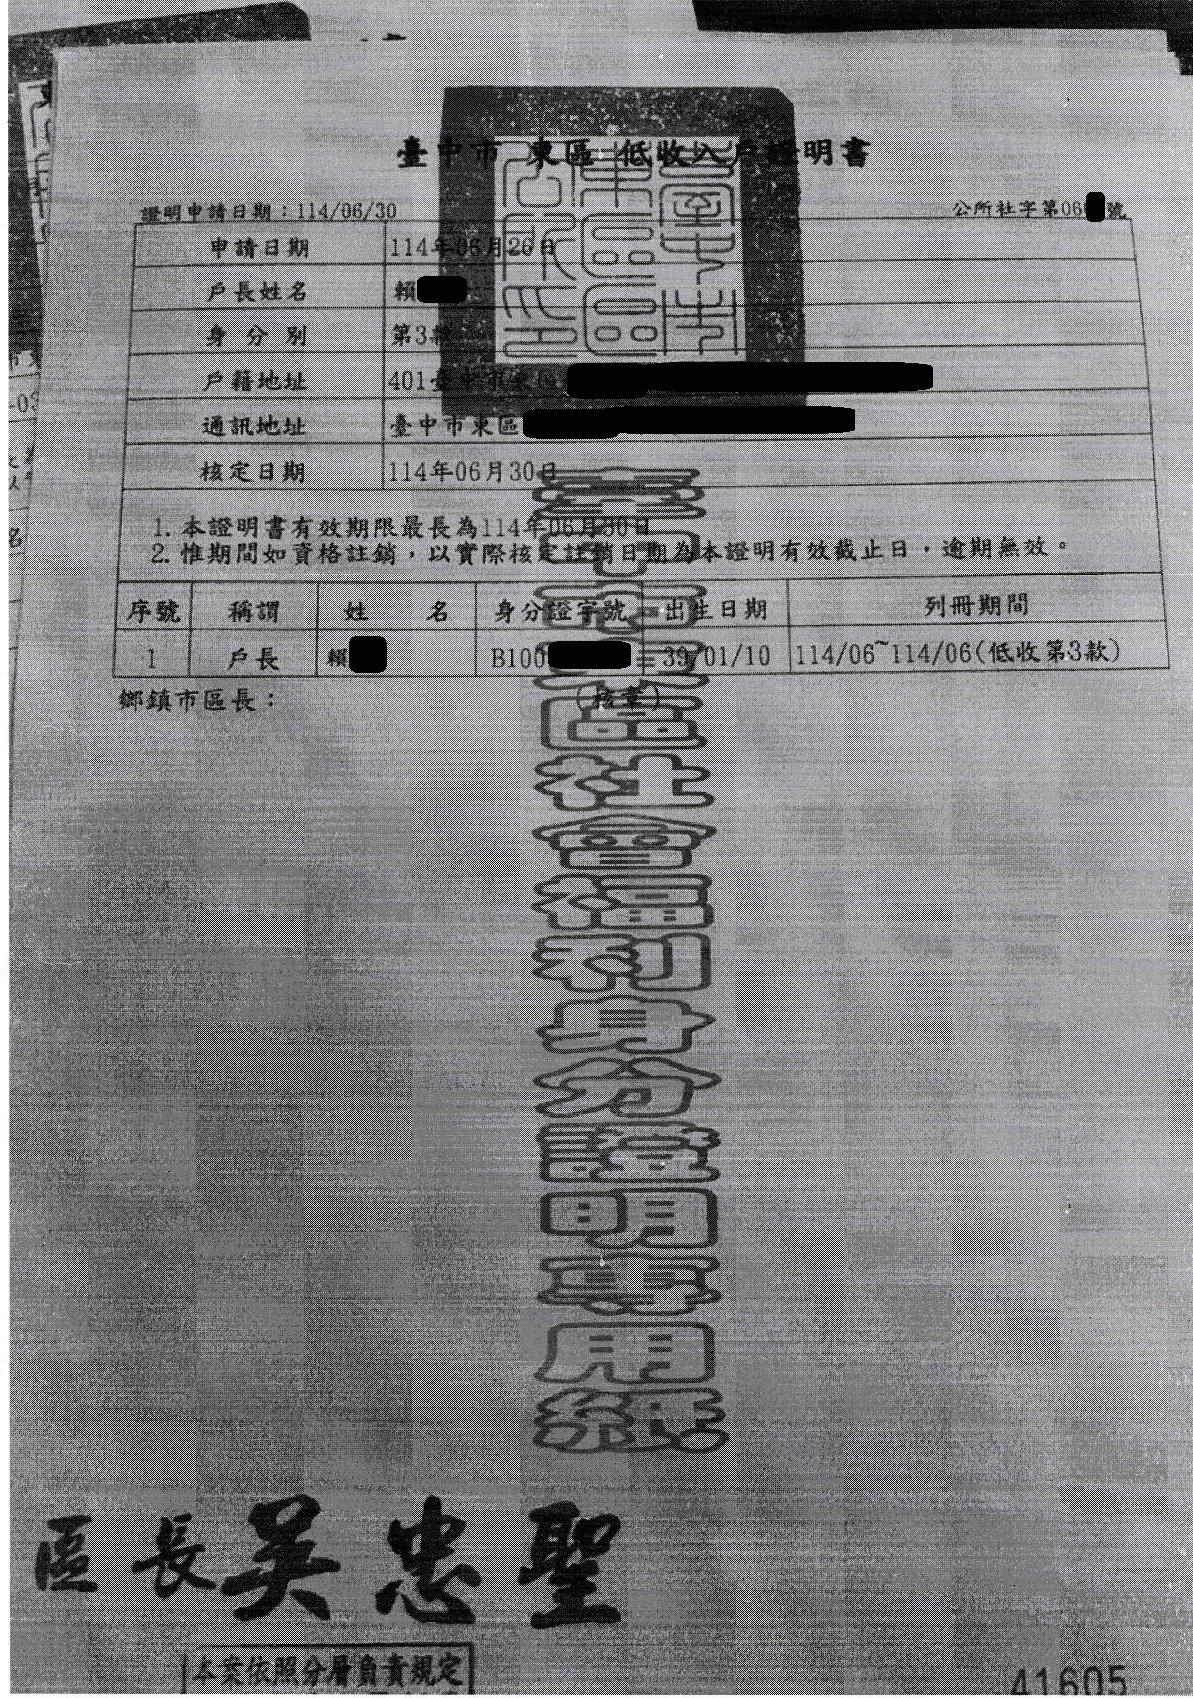 臺中市 東區 低收入戶證明書
證明申請日期：114/06/30
公所社字第06 號
申請日期 114年06月26日
戶長姓名 賴
身 分 別 第3款
戶籍地址 401臺中市東區
通訊地址 臺中市東區
核定日期 114年06月30日
1. 本證明書有效期限最長為114年06月30日
2. 惟期間如資格註銷，以實際核定註銷日期為本證明有效截止日，逾期無效。
序號 稱謂 姓 名 身分證字號 出生日期 列冊期間
1 戶長 賴 B100 39/01/10 114/06~114/06(低收第3款)
鄉鎮市區長： (核章)
區社會福利身分證明專用紙
區長 吳忠聖
本案依照分層負責規定
41605